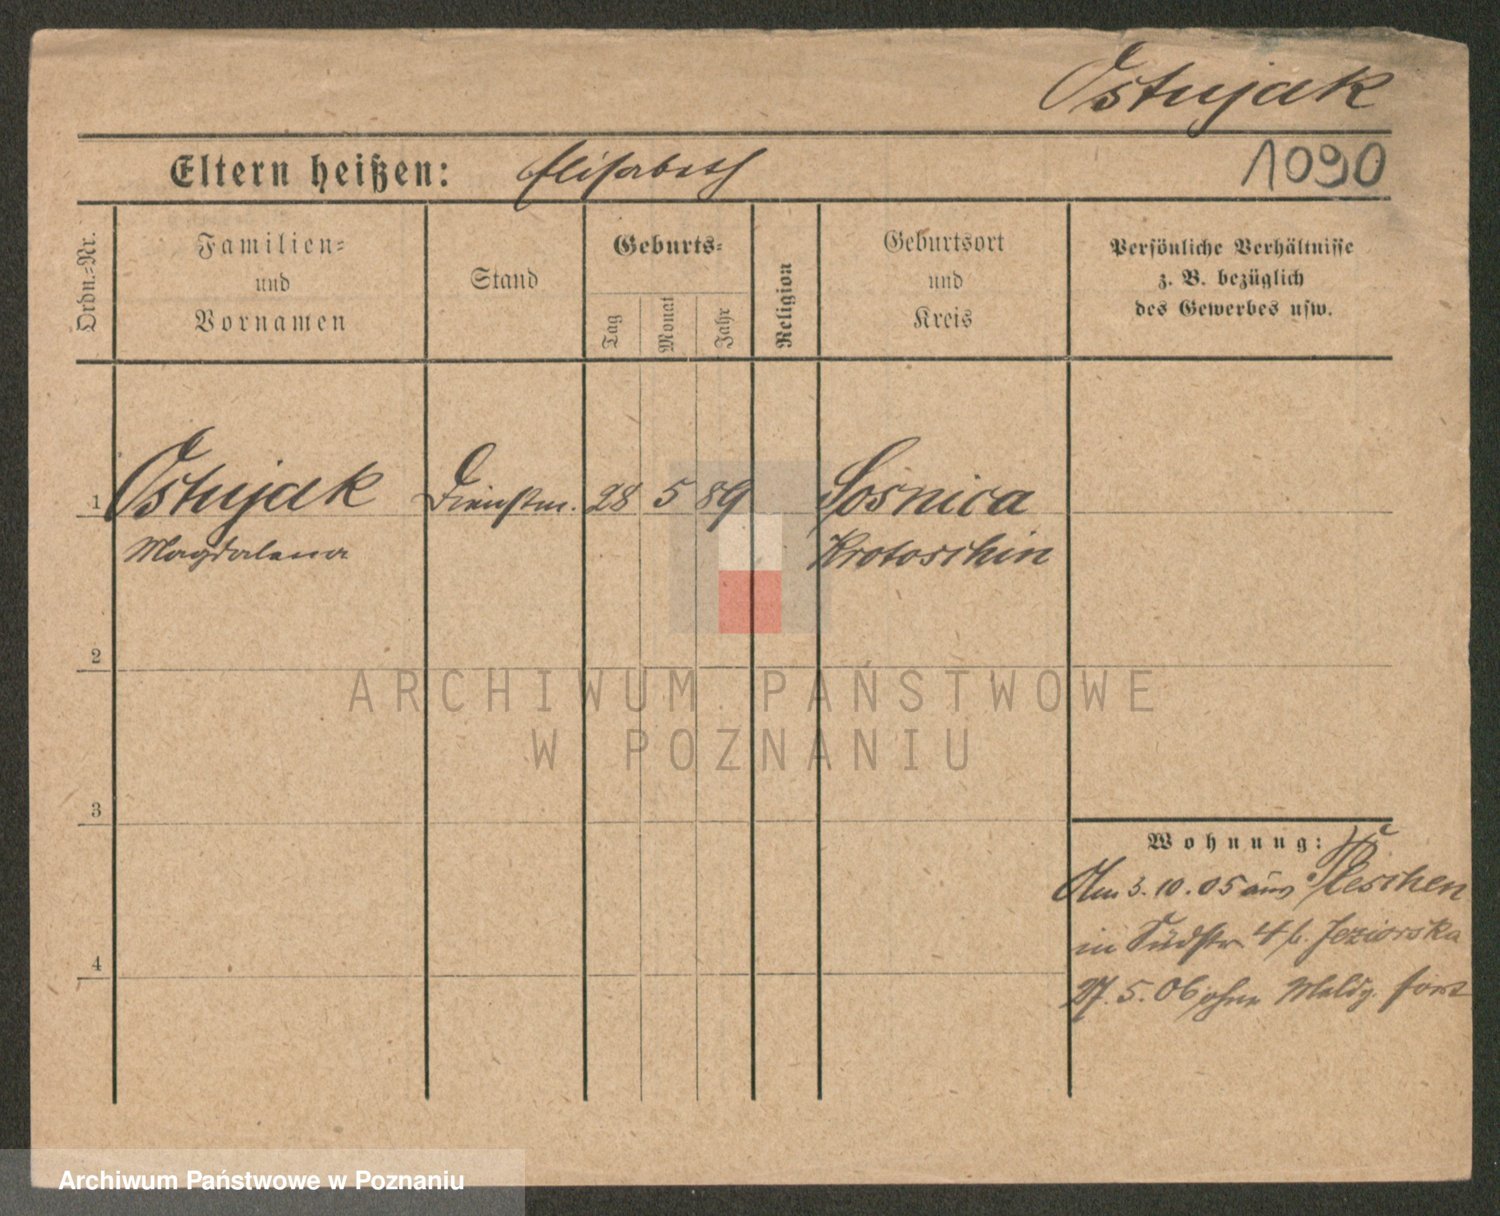 Ostujak
Eltern heißen: Elisabeth
1090
Ordn.-Nr.
Familien-
und
Vornamen
Stand
Geburts-
Tag
Monat
Jahr
Religion
Geburtsort
und
Kreis
Persönliche Verhältnisse
z. B. bezüglich
des Gewerbes usw.
1 Ostujak Dienstm. 28 5 89 Sosnica
Magdalena Krotoschin
2
ARCHIWUM PAŃSTWOWE
W POZNANIU
3
Wohnung:
Am 3.10.05 aus Pleschen
in Südstr. 4 b. Jeziorska
27.5.06 ohne Meldg. fort
4
Archiwum Państwowe w Poznaniu